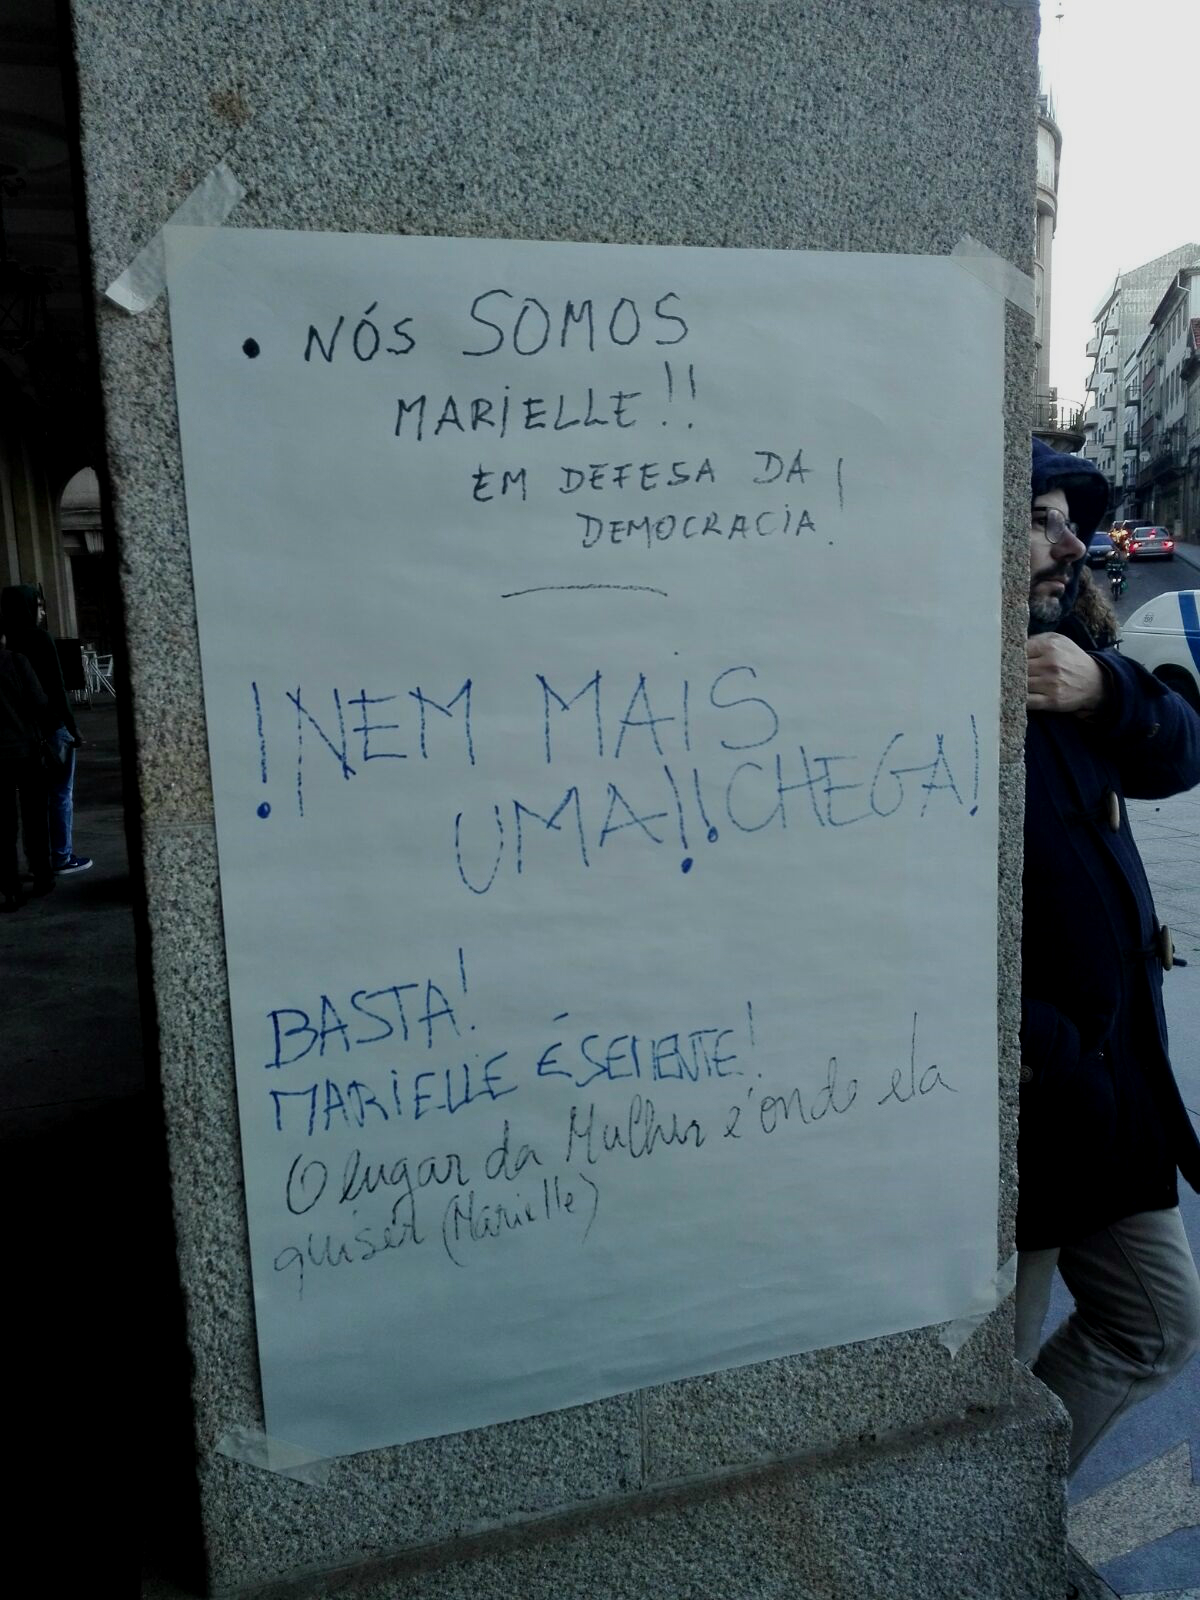 • NÓS SOMOS
MARIELLE!!
EM DEFESA DA
DEMOCRACIA!
! NEM MAIS
UMA!! CHEGA!
BASTA!
MARIELLE É SEMENTE!
O lugar da Mulher é onde ela
quiser (Marielle)